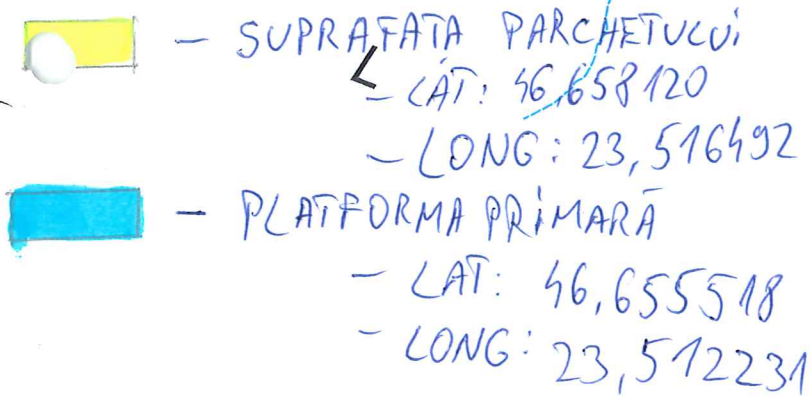 - SUPRAFAȚA PARCHETULUI
- LAT: 46,658120
- LONG: 23,516492
- PLATFORMA PRIMARĂ
- LAT: 46,655518
- LONG: 23,512231